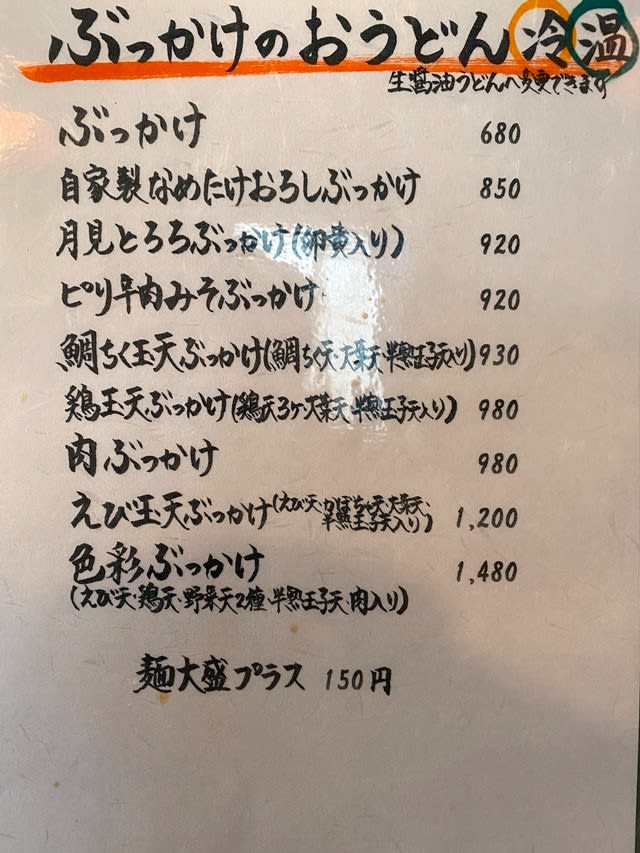 ぶっかけのおうどん 冷 温
生醤油うどんへ変更できます
ぶっかけ 680
自家製なめたけおろしぶっかけ 850
月見とろろぶっかけ(卵黄入り) 920
ピリ辛肉みそぶっかけ 920
鯛ちく玉天ぶっかけ(鯛ちく天・大葉天・半熟玉子天入り) 930
鶏玉天ぶっかけ(鶏天3ケ・大葉天・半熟玉子天入り) 980
肉ぶっかけ 980
えび玉天ぶっかけ(えび天・かぼちゃ天・大葉天・
半熟玉子天入り) 1,200
色彩ぶっかけ 1,480
(えび天・鶏天・野菜天2種・半熟玉子天・肉入り)
麺大盛プラス 150円